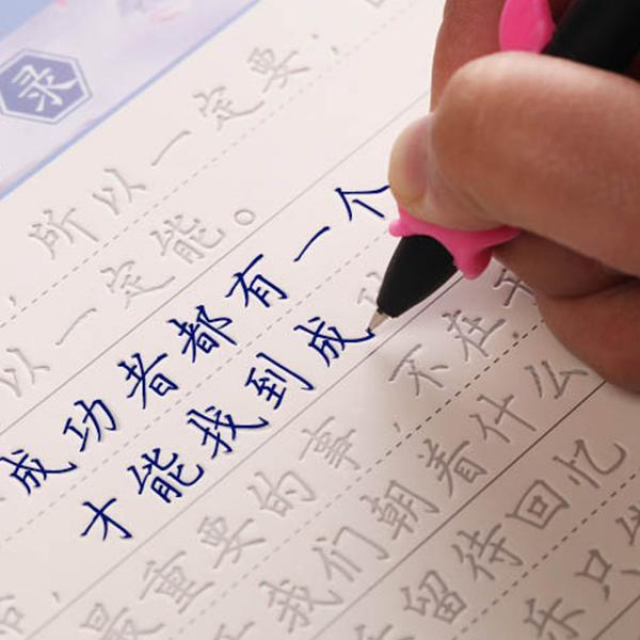 录
所以一定要，
以一定能。
成功者都有一个
才能找到成
不在于
最重要的事，
我们朝着什么
留待回忆
乐只